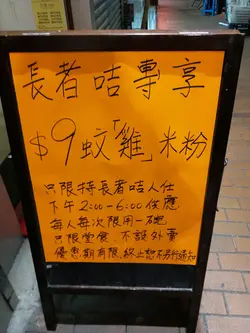 長者咭專享
$9蚊「雞」米粉
只限持長者咭人仕
下午2:00-6:00供應
每人每次限用一碗
只限堂食,不設外賣
優惠期有限,終止恕不另行通知